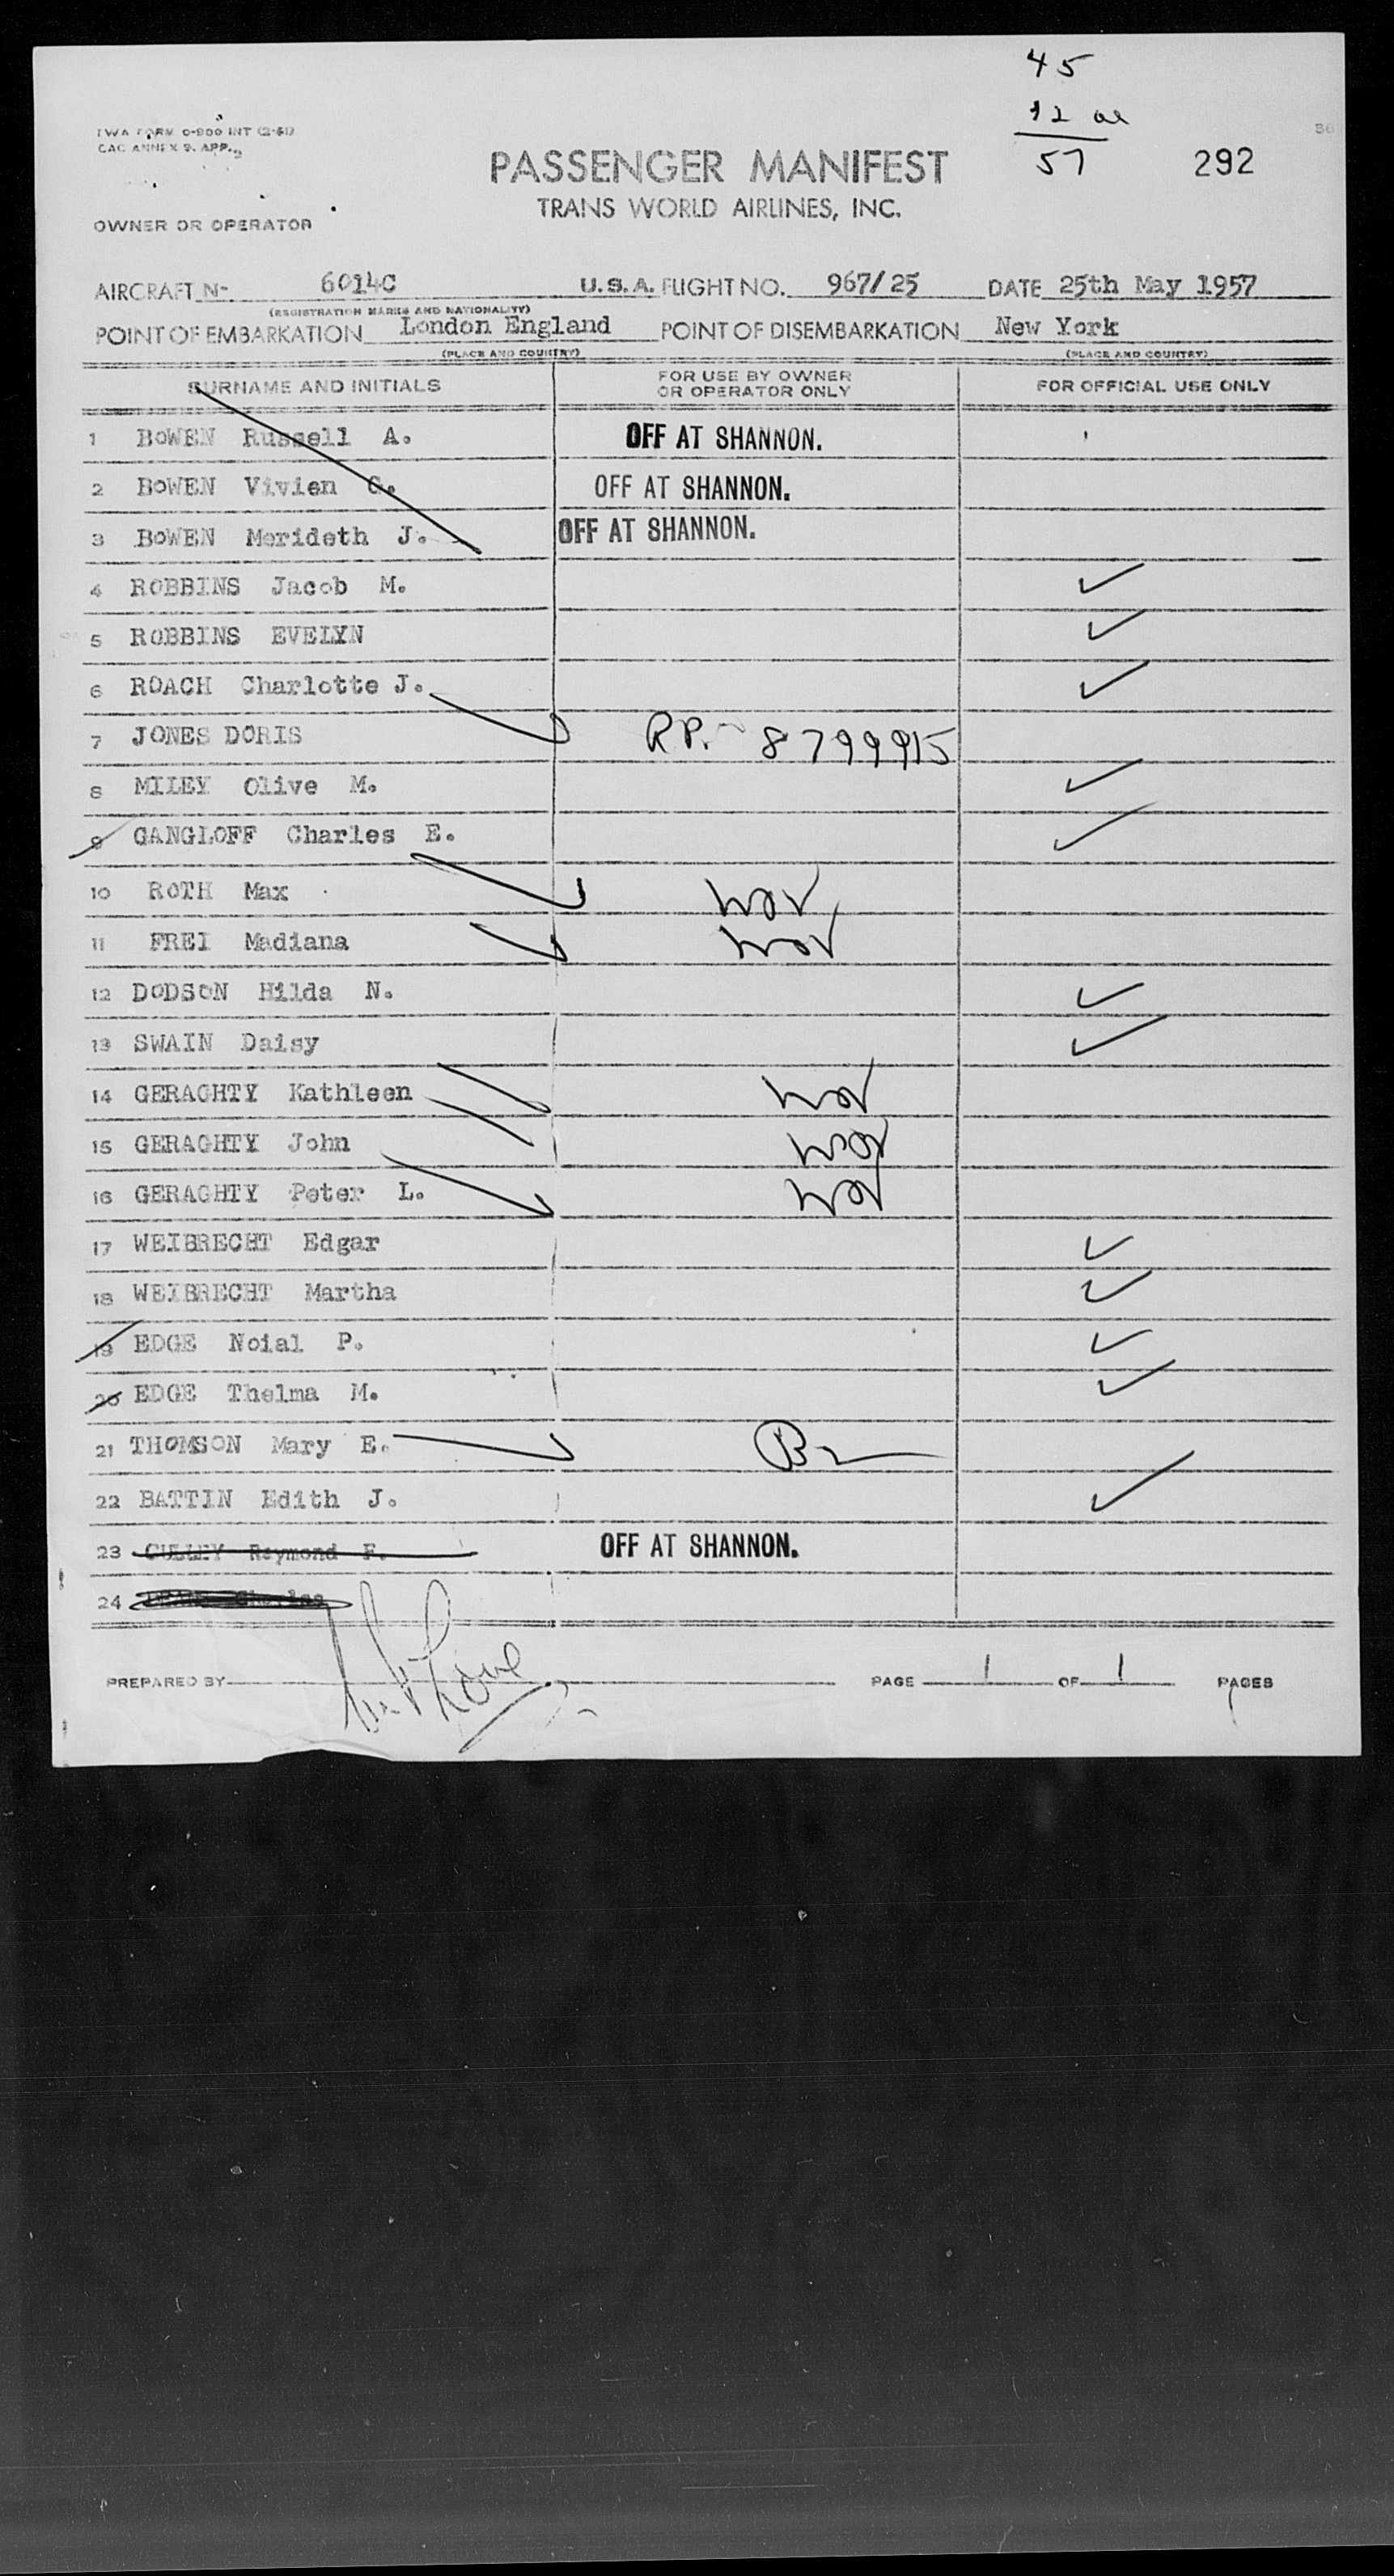 45
12 al
57
292
TWA FORM 0-800 INT (2-51)
CAC ANNEX 9. APP.
PASSENGER MANIFEST
TRANS WORLD AIRLINES, INC.
OWNER OR OPERATOR
AIRCRAFT N- 6014C U.S.A. FLIGHT NO. 967/25 DATE 25th May 1957
(REGISTRATION MARKS AND NATIONALITY)
POINT OF EMBARKATION London England POINT OF DISEMBARKATION New York
(PLACE AND COUNTRY) (PLACE AND COUNTRY)
SURNAME AND INITIALS FOR USE BY OWNER OR OPERATOR ONLY FOR OFFICIAL USE ONLY
1 BOWEN Russell A. OFF AT SHANNON.
2 BOWEN Vivien G. OFF AT SHANNON.
3 BOWEN Merideth J. OFF AT SHANNON.
4 ROBBINS Jacob M.
5 ROBBINS EVELYN
6 ROACH Charlotte J.
7 JONES DORIS R.P. 8799915
8 MILEY Olive M.
9 GANGLOFF Charles E.
10 ROTH Max
11 FREI Madiana
12 DODSON Hilda N.
13 SWAIN Daisy
14 GERAGHTY Kathleen
15 GERAGHTY John
16 GERAGHTY Peter L.
17 WEIBRECHT Edgar
18 WEIBRECHT Martha
19 EDGE Noial P.
20 EDGE Thelma M.
21 THOMSON Mary E.
22 BATTIN Edith J.
23 CULLEY Raymond F. OFF AT SHANNON.
24 Charles
PREPARED BY PAGE 1 OF 1 PAGES